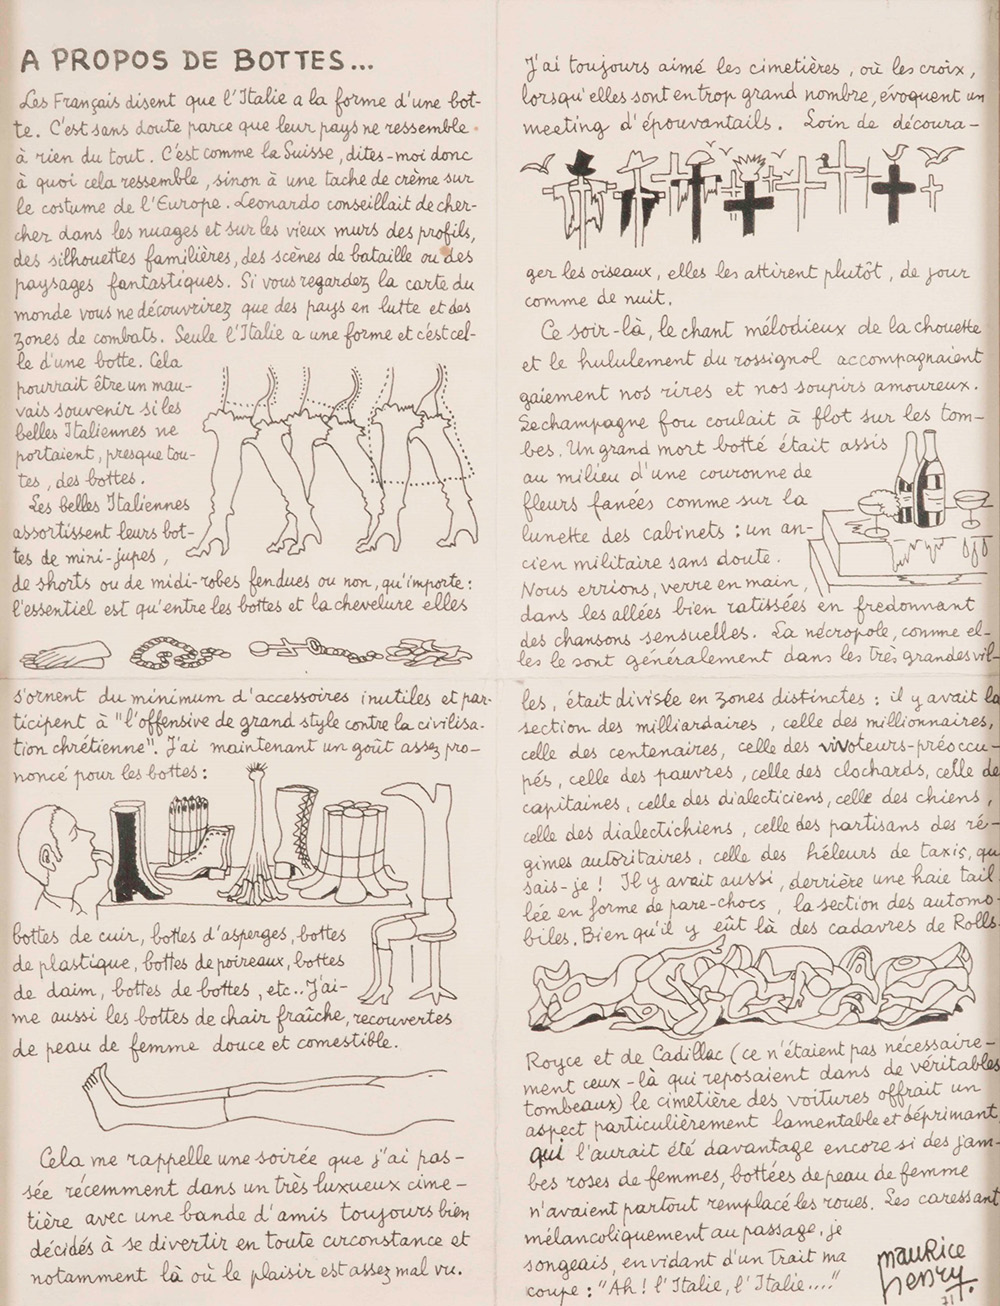 A PROPOS DE BOTTES...
Les Français disent que l'Italie a la forme d'une bot-
te. C'est sans doute parce que leur pays ne ressemble
à rien du tout. C'est comme la Suisse, dites-moi donc
à quoi cela ressemble, sinon à une tache de crème sur
le costume de l'Europe. Leonardo conseillait de cher-
cher dans les nuages et sur les vieux murs des profils,
des silhouettes familières, des scènes de bataille ou des
paysages fantastiques. Si vous regardez la carte du
monde vous ne découvrirez que des pays en lutte et des
zones de combats. Seule l'Italie a une forme et c'est cel-
le d'une botte. Cela
pourrait être un mau-
vais souvenir si les
belles Italiennes ne
portaient, presque tou-
tes, des bottes.
Les belles Italiennes
assortissent leurs bot-
tes de mini-jupes,
de shorts ou de midi-robes fendues ou non, qu'importe:
l'essentiel est qu'entre les bottes et la chevelure elles
s'ornent du minimum d'accessoires inutiles et par-
ticipent à "l'offensive de grand style contre la civilisa-
tion chrétienne". J'ai maintenant un goût assez pro-
noncé pour les bottes:
bottes de cuir, bottes d'asperges, bottes
de plastique, bottes de poireaux, bottes
de daim, bottes de bottes, etc.. J'ai-
me aussi les bottes de chair fraîche, recouvertes
de peau de femme douce et comestible.
Cela me rappelle une soirée que j'ai pas-
sée récemment dans un très luxueux cime-
tière avec une bande d'amis toujours bien
décidés à se divertir en toute circonstance et
notamment là où le plaisir est assez mal vu.
J'ai toujours aimé les cimetières, où les croix,
lorsqu'elles sont en trop grand nombre, évoquent un
meeting d'épouvantails. Loin de découra-
ger les oiseaux, elles les attirent plutôt, de jour
comme de nuit.
Ce soir-là, le chant mélodieux de la chouette
et le hululement du rossignol accompagnaient
gaiement nos rires et nos soupirs amoureux.
Le champagne fou coulait à flot sur les tom-
bes. Un grand mort botté était assis
au milieu d'une couronne de
fleurs fanées comme sur la
lunette des cabinets : un an-
cien militaire sans doute.
Nous errions, verre en main,
dans les allées bien ratissées en fredonnant
des chansons sensuelles. La nécropole, comme el-
les le sont généralement dans les très grandes vil-
les, était divisée en zones distinctes : il y avait la
section des milliardaires, celle des millionnaires,
celle des centenaires, celle des vivoteurs-préoccu-
pés, celle des pauvres, celle des clochards, celle de
capitaines, celle des dialecticiens, celle des chiens,
celle des dialectichiens, celle des partisans des ré-
gimes autoritaires, celle des héleurs de taxis, que
sais-je ! Il y avait aussi, derrière une haie tail-
lée en forme de pare-chocs, la section des automo-
biles. Bien qu'il y eût là des cadavres de Rolls-
Royce et de Cadillac (ce n'étaient pas nécessaire-
ment ceux-là qui reposaient dans de véritables
tombeaux) le cimetière des voitures offrait un
aspect particulièrement lamentable et déprimant
qui l'aurait été davantage encore si des jam-
bes roses de femmes, bottées de peau de femme
n'avaient partout remplacé les roues. Les caressant
mélancoliquement au passage, je
songeais, en vidant d'un trait ma
coupe : "Ah ! l'Italie, l'Italie...."
mauRice
henry
71